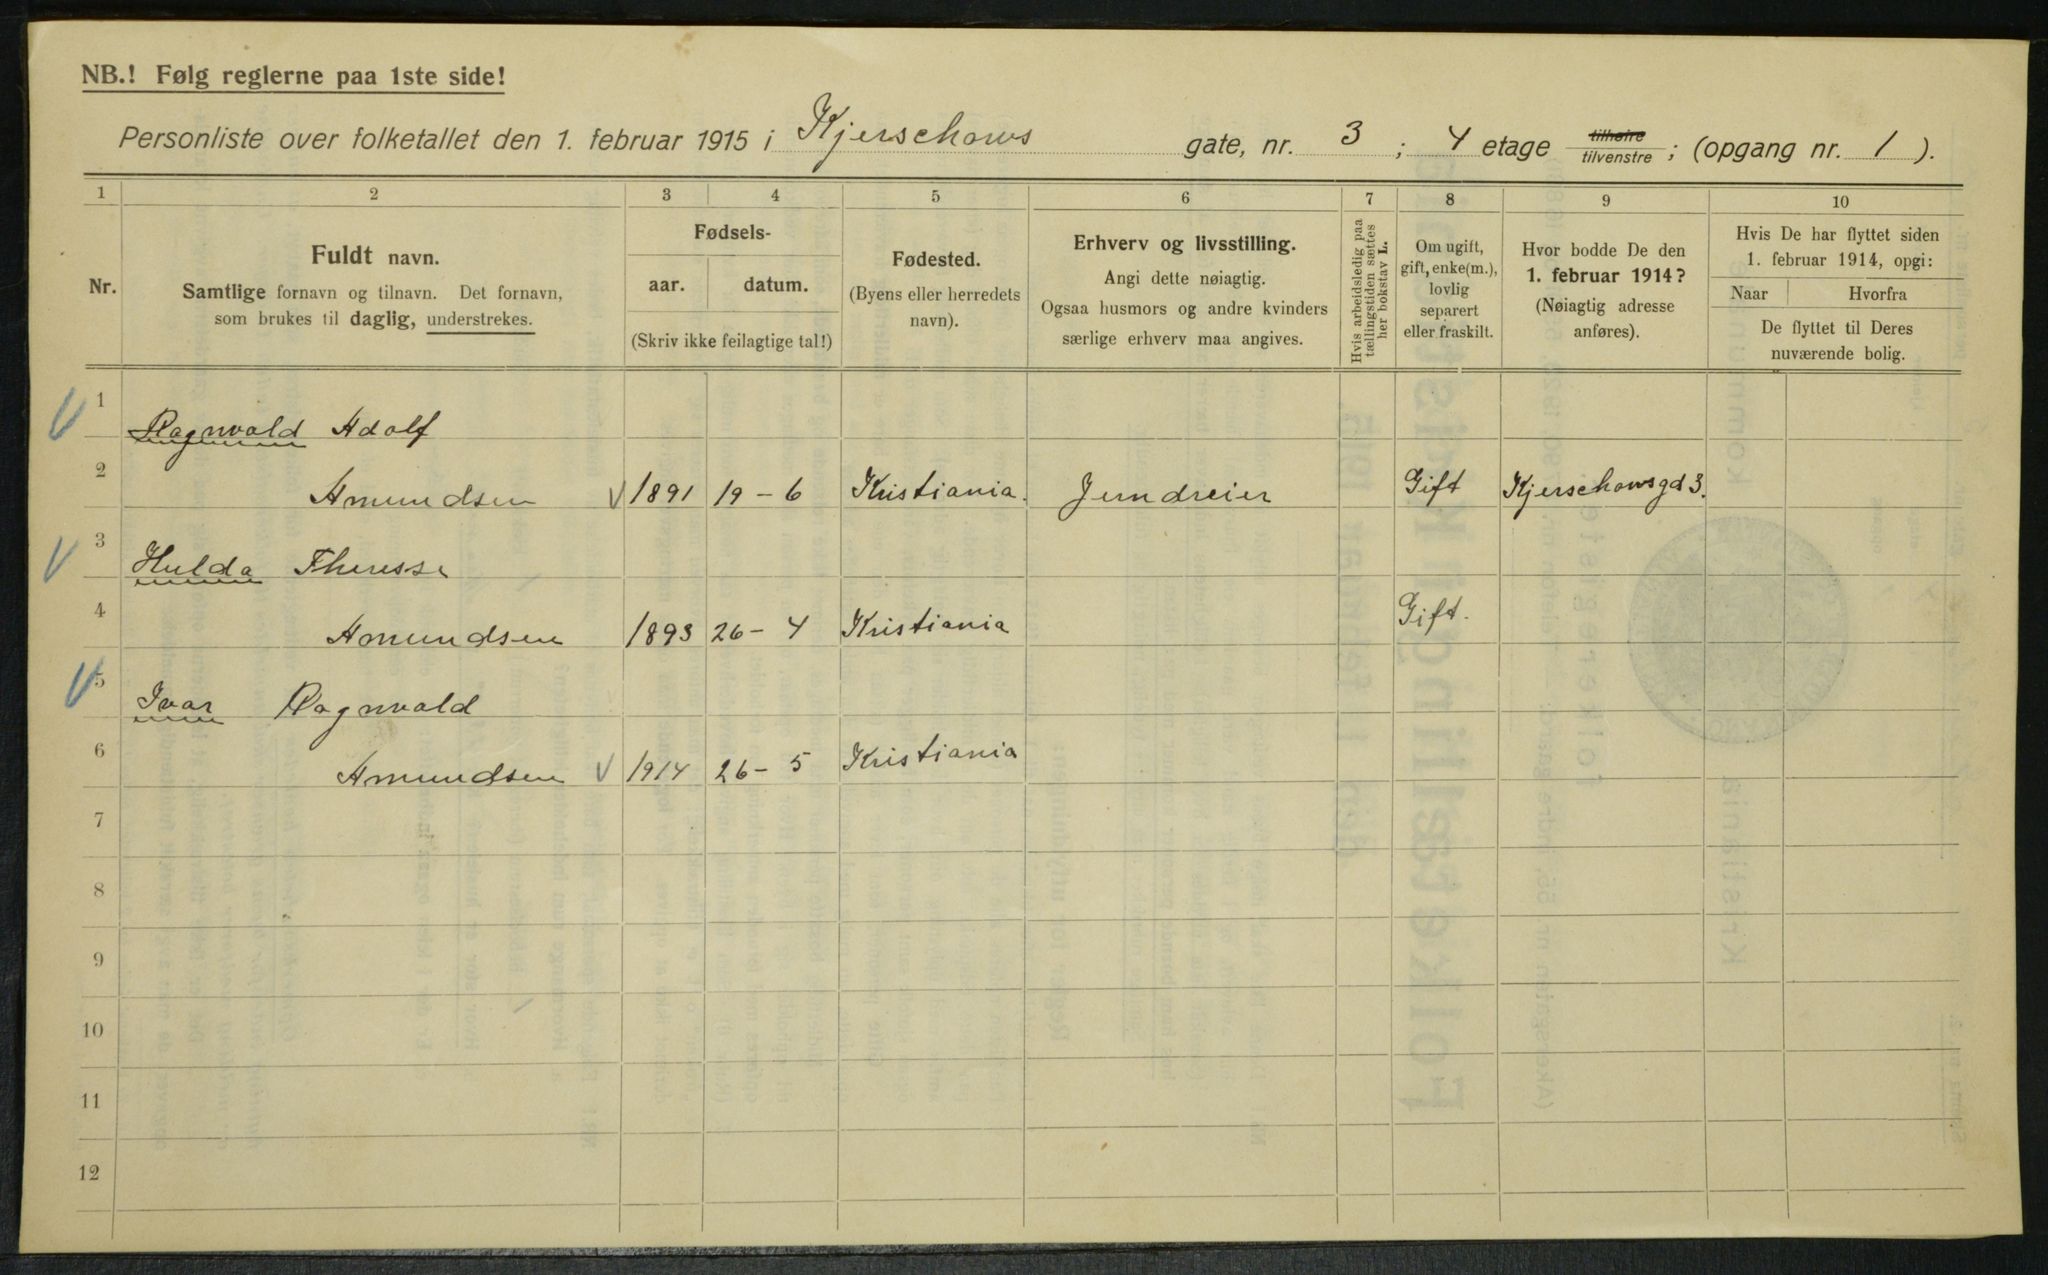 NB.! Følg reglerne paa 1ste side!
Personliste over folketallet den 1. februar 1915 i Kjerschows gate, nr. 3 ; 4 etage tilhøire tilvenstre ; (opgang nr. 1 ).
1 2 3 4 5 6 7 8 9 10
Nr.
Fuldt navn.
Samtlige fornavn og tilnavn. Det fornavn,
som brukes til daglig, understrekes.
Fødsels-
aar. datum.
(Skriv ikke feilagtige tal!)
Fødested.
(Byens eller herredets
navn).
Erhverv og livsstilling.
Angi dette nøiagtig.
Ogsaa husmors og andre kvinders
særlige erhverv maa angives.
Hvis arbeidsledig paa
tællingstiden sættes
her bokstav L.
Om ugift,
gift, enke(m.),
lovlig
separert
eller fraskilt.
Hvor bodde De den
1. februar 1914?
(Nøiagtig adresse
anføres).
Hvis De har flyttet siden
1. februar 1914, opgi:
Naar Hvorfra
De flyttet til Deres
nuværende bolig.
1 Ragnvald Adolf
2 Amundsen 1891 19-6 Kristiania. Jerndreier Gift Kjerschowsgd 3.
3 Hulda Theresse
4 Amundsen 1893 26-4 Kristiania Gift.
5 Ivar Ragnvald
6 Amundsen 1914 26-5 Kristiania
7
8
9
10
11
12